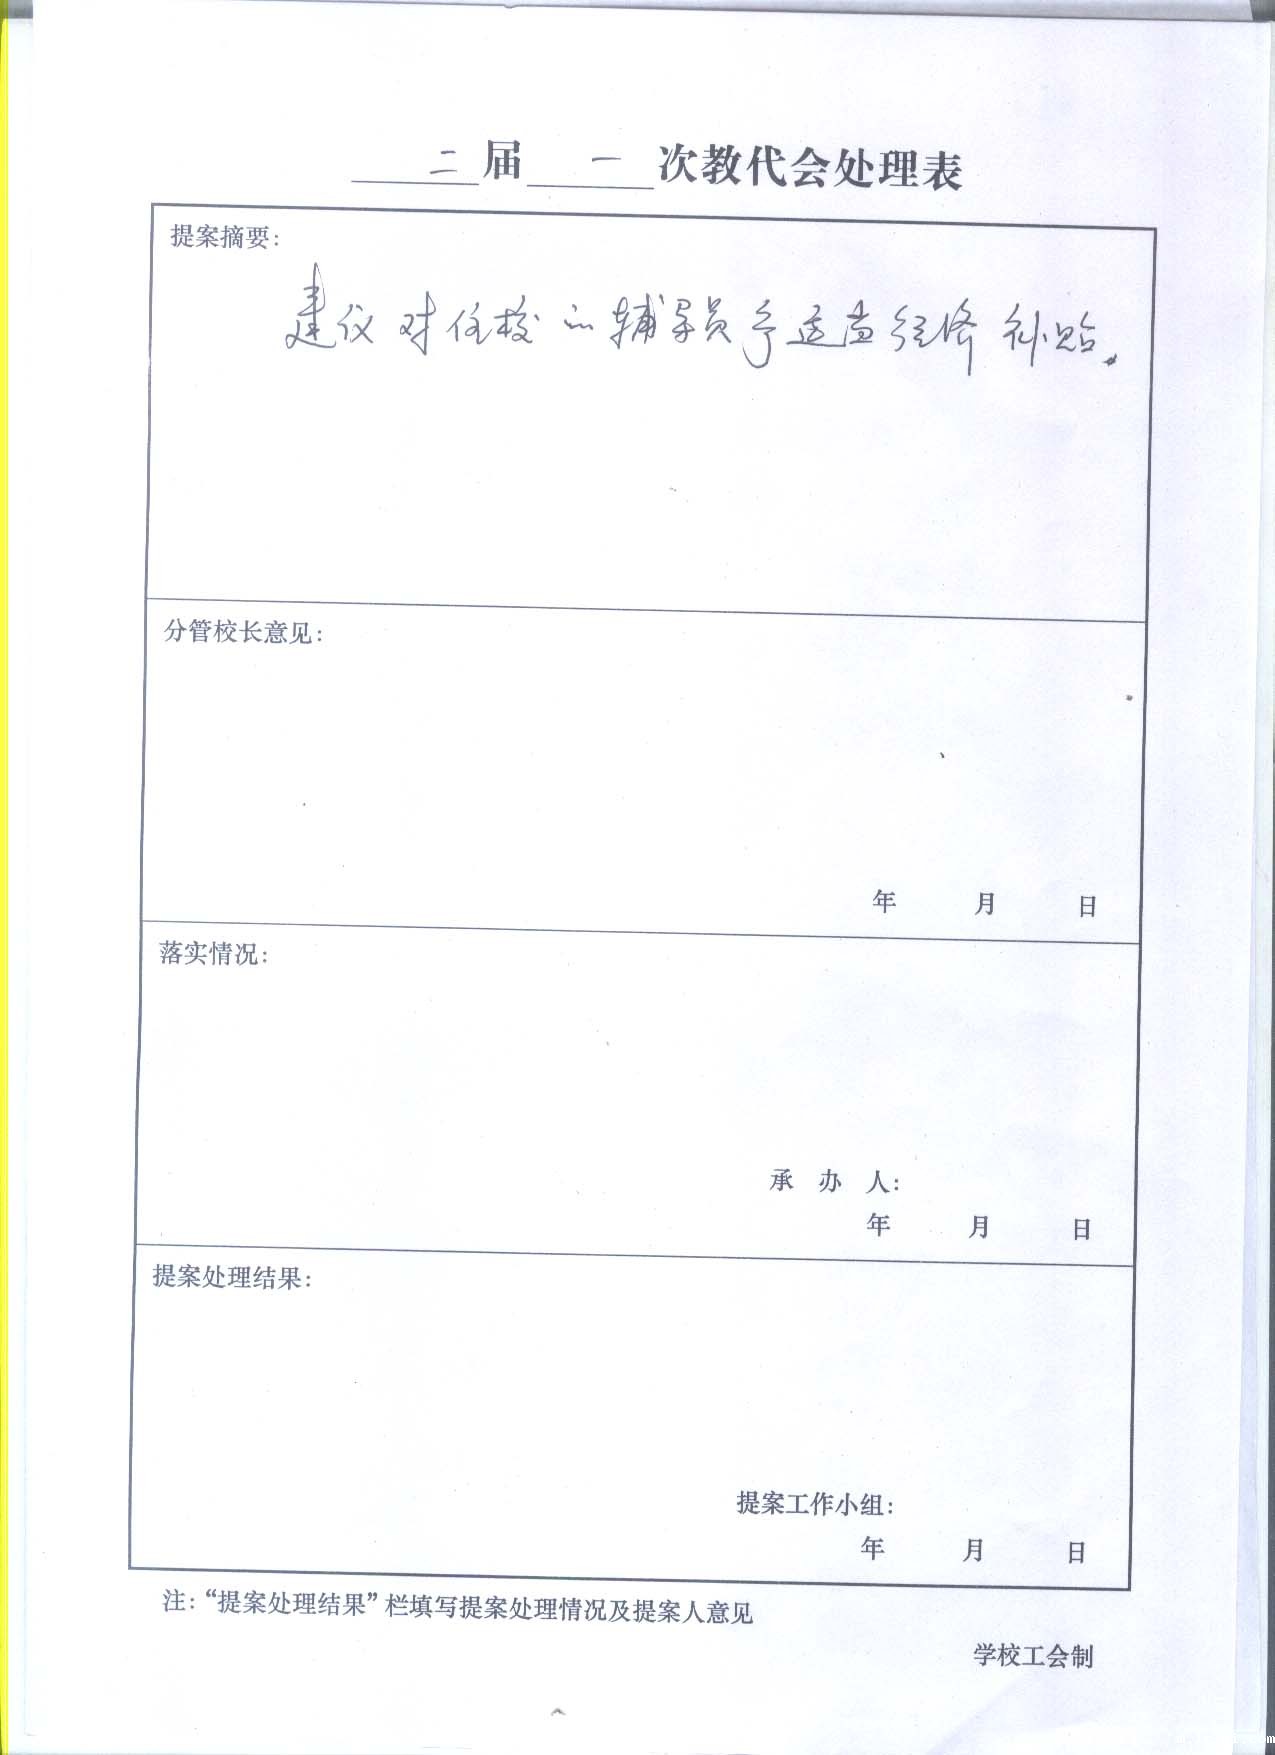 二届 一 次教代会处理表
提案摘要：
建议对住校的辅导员予适当经济补贴。
分管校长意见：
年 月 日
落实情况：
承 办 人：
年 月 日
提案处理结果：
提案工作小组：
年 月 日
注：“提案处理结果”栏填写提案处理情况及提案人意见
学校工会制
m